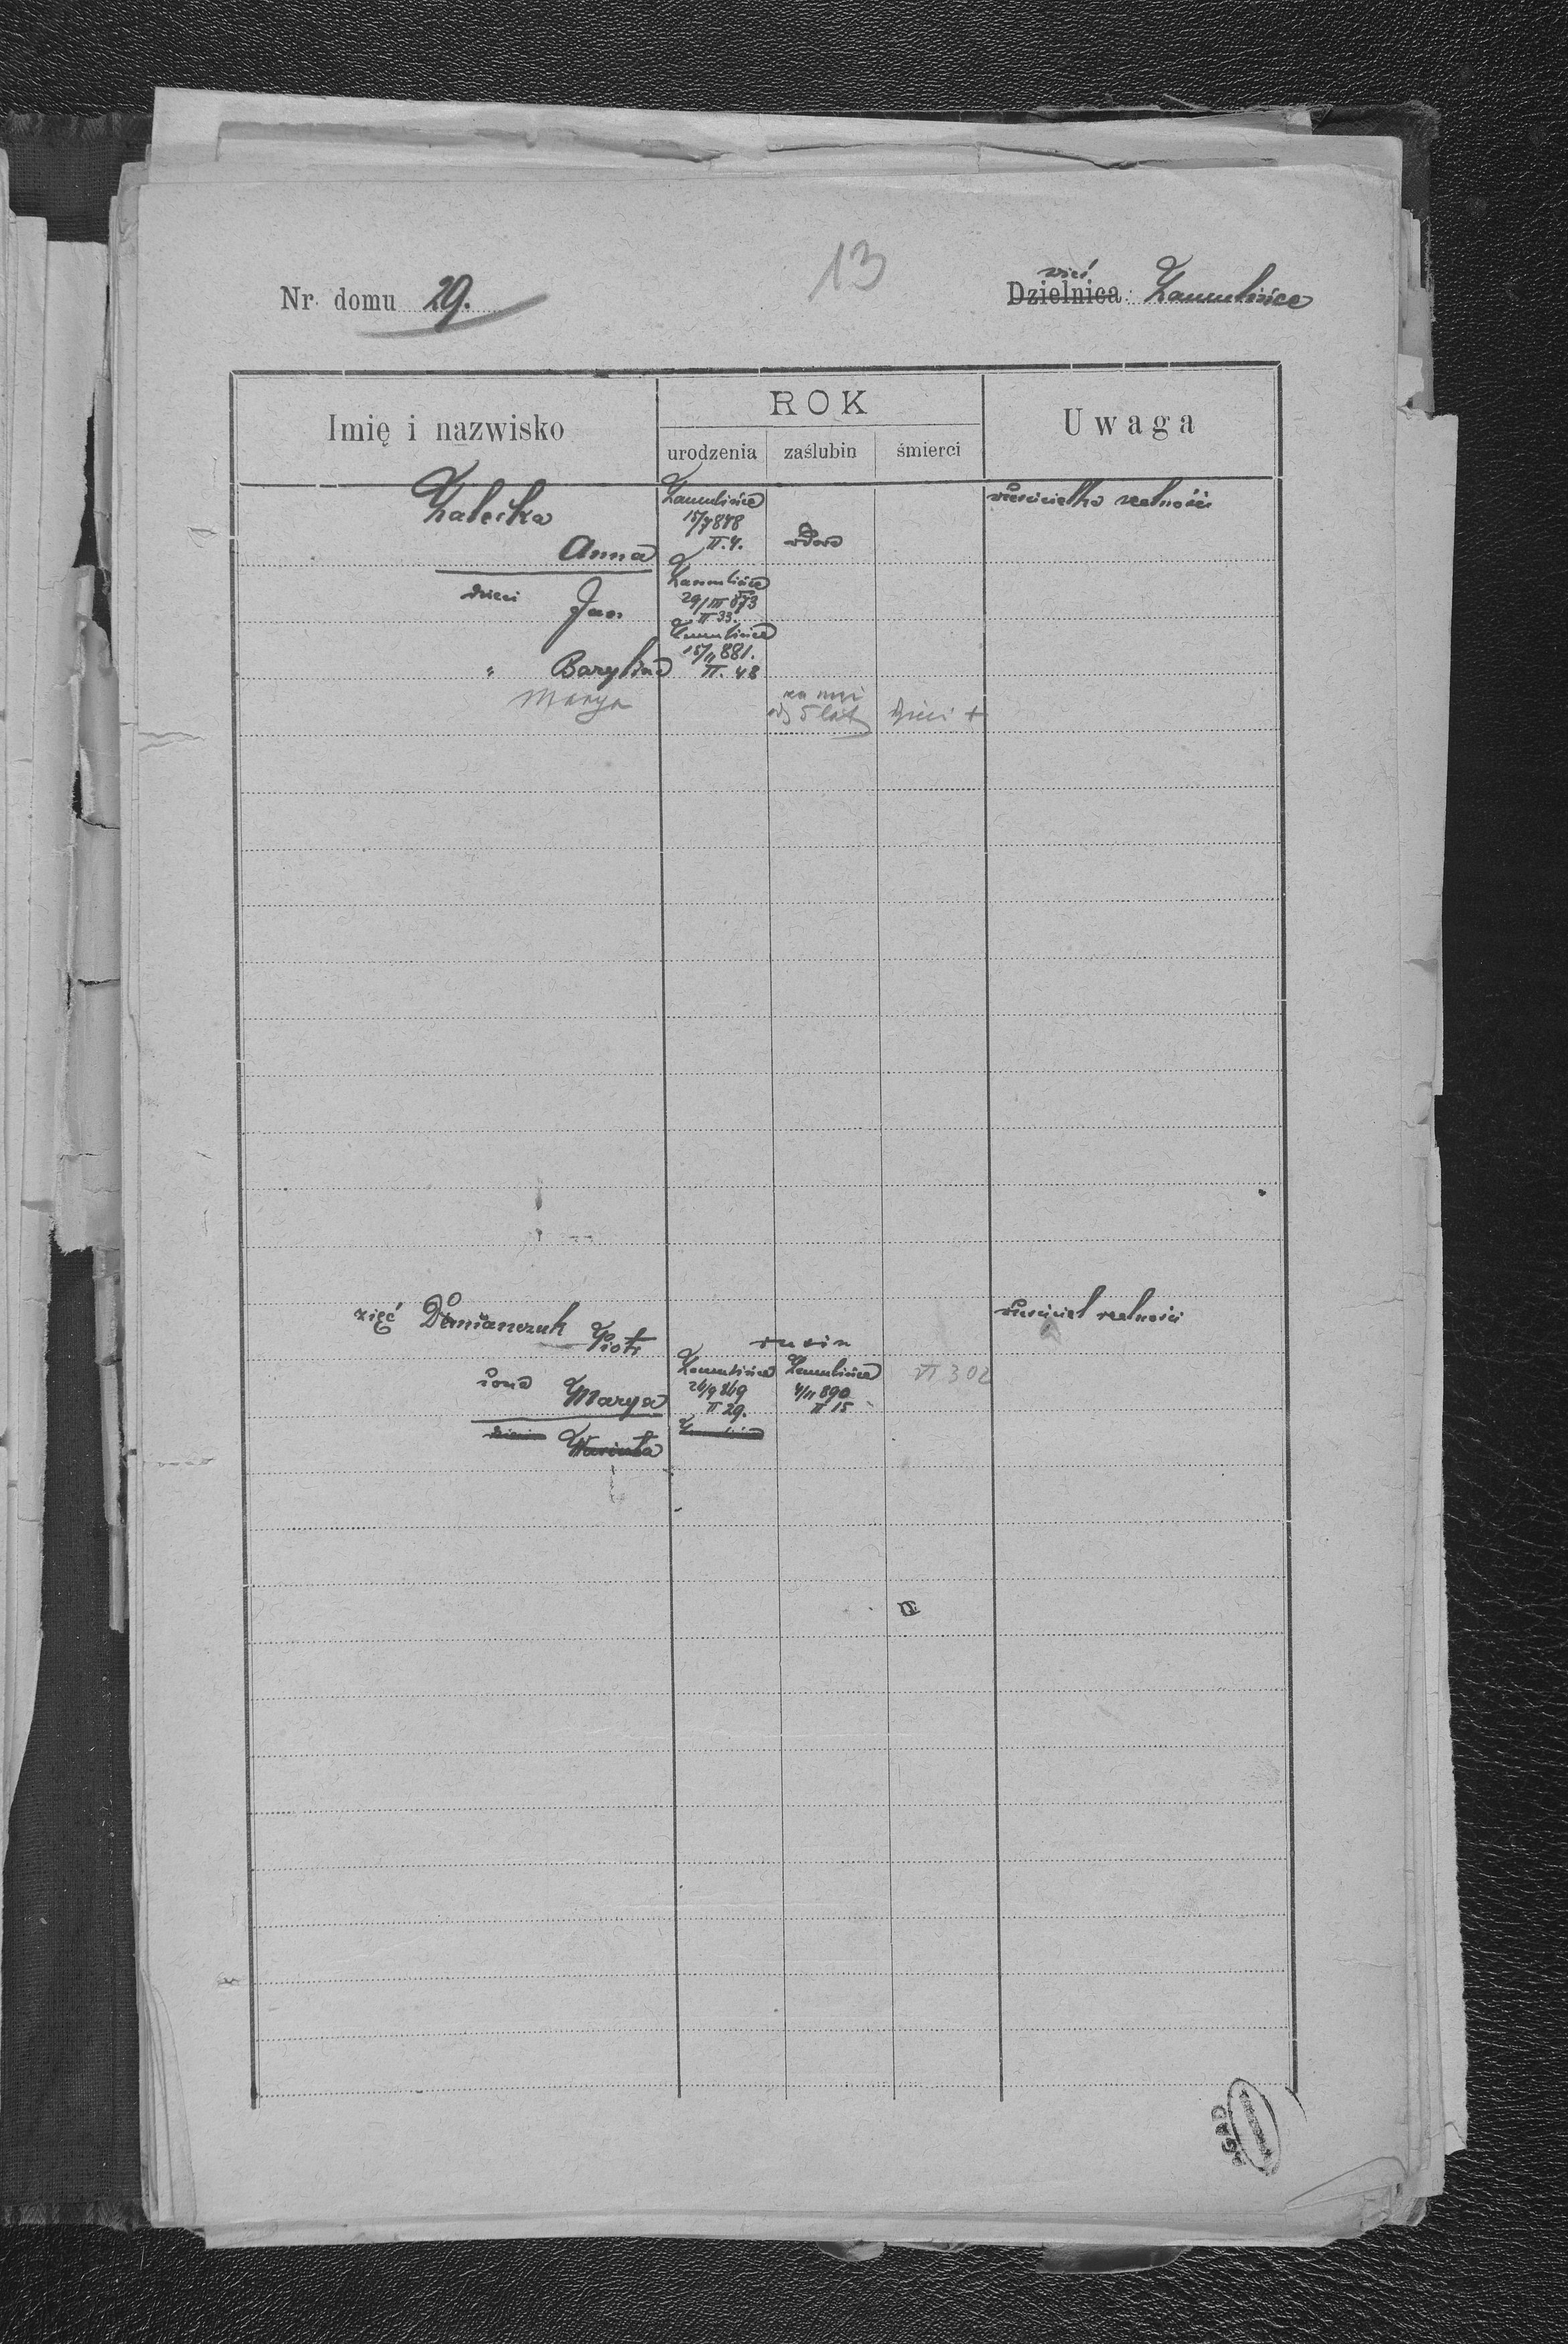 13
Nr. domu 29.
wieś
Dzielnica Zamulińce
Imię i nazwisko
ROK
urodzenia zaślubin śmierci
Uwaga
Załecka
Anna
Zamulińce
II. 4.
wdowa
właścicielka realności
dzieci Jan
Zamulińce
29/III 873
II 33.
" Barylina
Zamulińce
15/11 881.
II. 48
Marya
od 5 lat
dzieci +
zięć Demianczuk Piotr
rusin
właściciel realności
żona Marya
Zamulińce
26/9 869
II 29.
Zamulińce
4/11 890
II 15
VI 302
dzieci
Zamulińce
AGAD